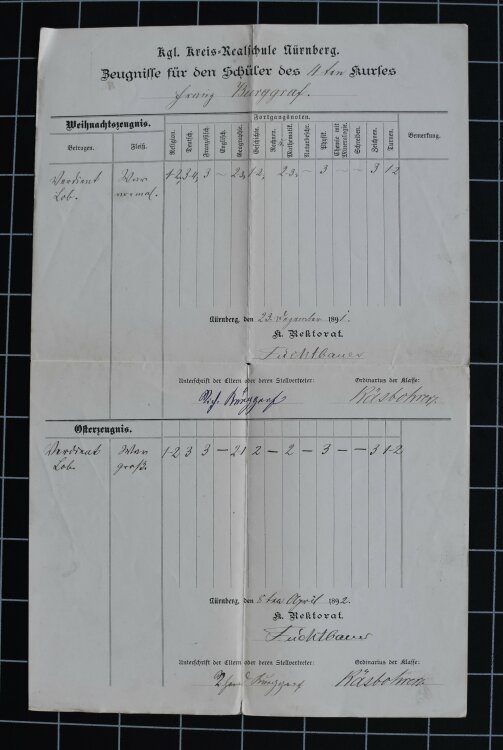 Kgl. Kreis-Realschule Nürnberg.
Zeugnisse für den Schüler des 4 ten Kurses
Franz Burggraf.
Weihnachtszeugnis.
Fortgangsnoten.
Betragen. Fleiß. Religion. Deutsch. Französisch. Englisch. Geographie. Geschichte. Rechnen. Mathematik. Naturbeschr. Physik. Chemie mit Mineralogie. Schreiben. Zeichnen. Turnen. Bemerkung.
Verdient War 1-2, 3-4, 3 – 2-3, 1-2, 2-3, – 3 – – 3 1-2
Lob. normal.
Nürnberg, den 23. Dezember 1891.
K. Rektorat.
Füchtbauer
Unterschrift der Eltern oder deren Stellvertreter: Ordinarius der Klasse:
Burggraf Käsbohrer.
Osterzeugnis.
Verdient War 1-2 3 3 – 2 1 2 – 2 – 3 – – 3 1-2
Lob. groß.
Nürnberg, den 8 ten April 1892.
K. Rektorat.
Füchtbauer
Unterschrift der Eltern oder deren Stellvertreter: Ordinarius der Klasse:
Burggraf Käsbohrer.